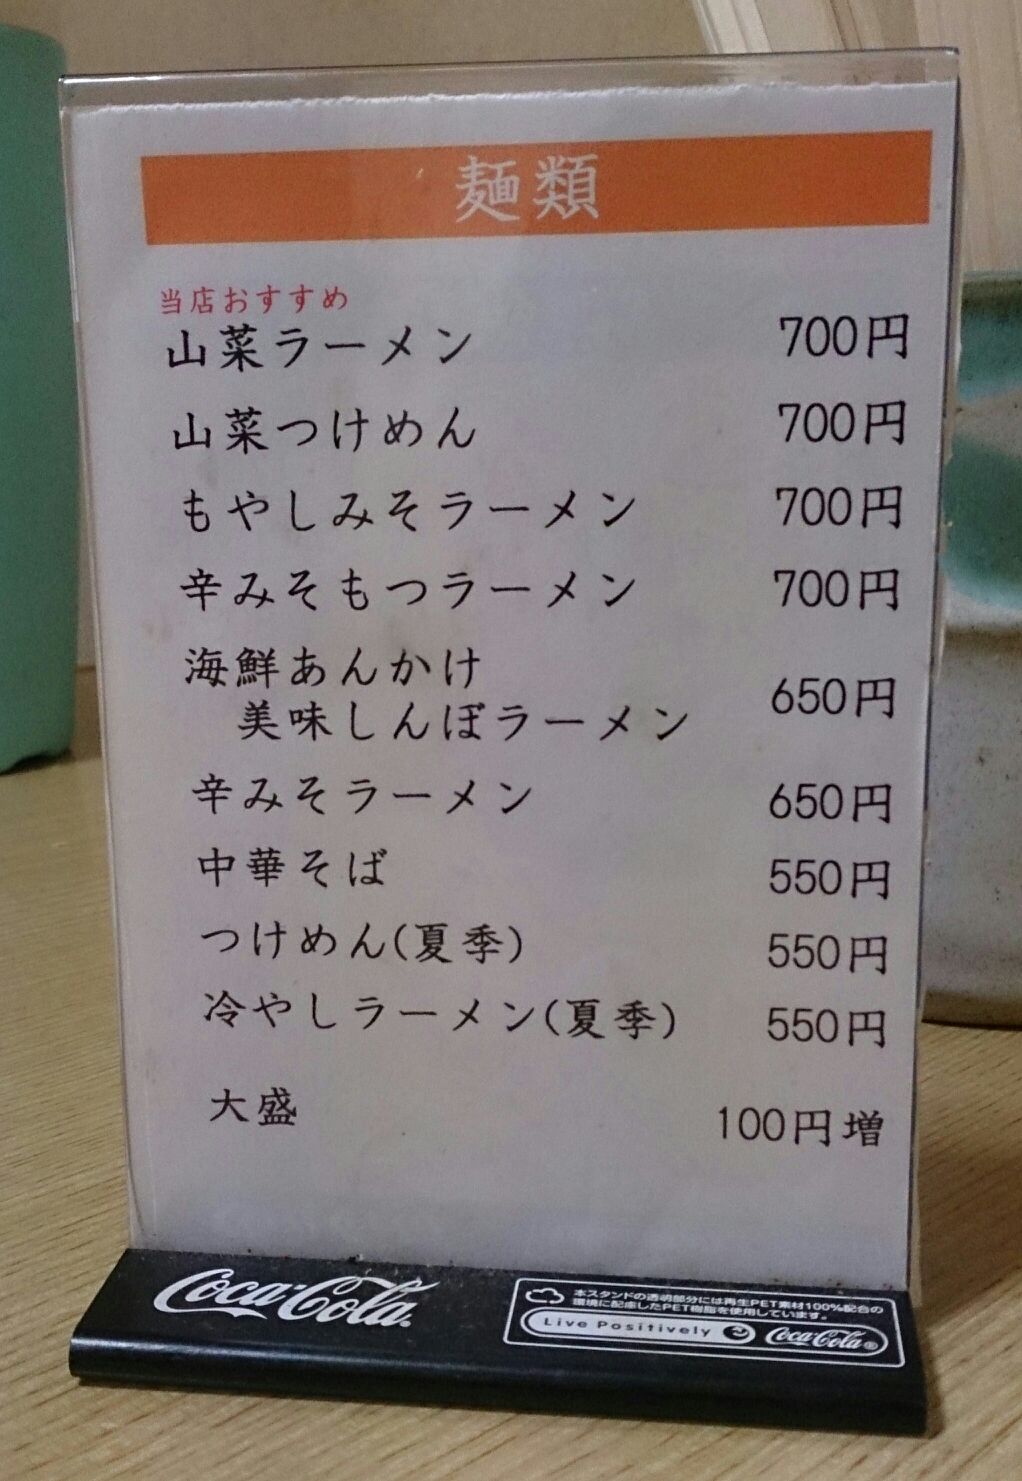 麺類
当店おすすめ
山菜ラーメン 700円
山菜つけめん 700円
もやしみそラーメン 700円
辛みそもつラーメン 700円
海鮮あんかけ
美味しんぼラーメン 650円
辛みそラーメン 650円
中華そば 550円
つけめん(夏季) 550円
冷やしラーメン(夏季) 550円
大盛 100円増
Coca-Cola
本スタンドの透明部分には再生PET素材100%配合の
環境に配慮したPET樹脂を使用しています。
Live Positively Coca-Cola®